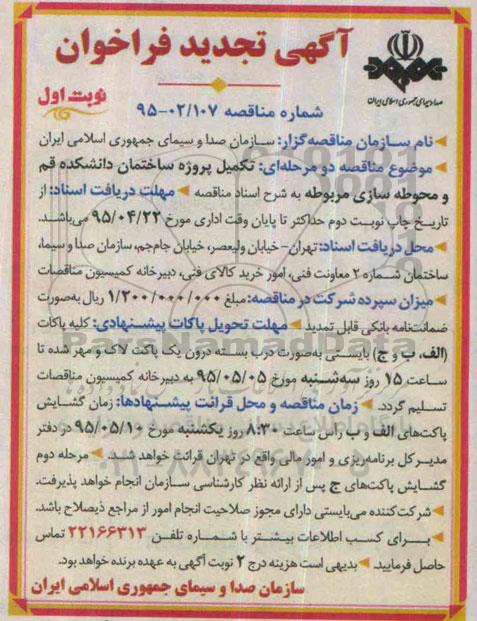 آگهی تجدید فراخوان
صدا و سیمای جمهوری اسلامی ایران
نوبت اول
شماره مناقصه ۹۵-۰۲/۱۰۷
نام سازمان مناقصه‌گزار: سازمان صدا و سیمای جمهوری اسلامی ایران
موضوع مناقصه دو مرحله‌ای: تکمیل پروژه ساختمان دانشکده قم
و محوطه سازی مربوطه به شرح اسناد مناقصه مهلت دریافت اسناد: از
تاریخ چاپ نوبت دوم حداکثر تا پایان وقت اداری مورخ ۹۵/۰۴/۲۲ می‌باشد.
محل دریافت اسناد: تهران- خیابان ولیعصر، خیابان جام‌جم، سازمان صدا و سیما،
ساختمان شماره ۲ معاونت فنی، امور خرید کالای فنی، دبیرخانه کمیسیون مناقصات
میزان سپرده شرکت در مناقصه: مبلغ ۱/۲۰۰/۰۰۰/۰۰۰ ریال به‌صورت
ضمانتنامه بانکی قابل تمدید مهلت تحویل پاکات پیشنهادی: کلیه پاکات
(الف، ب و ج) بایستی به‌صورت درب بسته درون یک پاکت لاک و مهر شده تا
ساعت ۱۵ روز سه‌شنبه مورخ ۹۵/۰۵/۰۵ به دبیرخانه کمیسیون مناقصات
تسلیم گردد. زمان مناقصه و محل قرائت پیشنهادها: زمان گشایش
پاکت‌های الف و ب راس ساعت ۸:۳۰ روز یکشنبه مورخ ۹۵/۰۵/۱۰ در دفتر
مدیر کل برنامه‌ریزی و امور مالی واقع در تهران قرائت خواهد شد. مرحله دوم
گشایش پاکت‌های ج پس از ارائه نظر کارشناسی سازمان انجام خواهد پذیرفت.
شرکت‌کننده می‌بایستی دارای مجوز صلاحیت انجام امور از مراجع ذیصلاح باشد.
برای کسب اطلاعات بیشتر با شماره تلفن ۲۲۱۶۶۳۱۳ تماس
حاصل فرمایید. بدیهی است هزینه درج ۲ نوبت آگهی به عهده برنده خواهد بود.
سازمان صدا و سیمای جمهوری اسلامی ایران
ParsNamadData